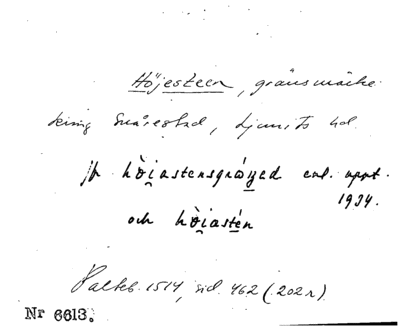 Höjesteen, gränsmärke
kring Snårestad, Ljunits hd.
jfr hòi̯astensgrǿu̯ed enl. uppt.
1934.
och hòi̯astén
Palteb. 1514, sid. 462 (202 r)
Nr 6613.